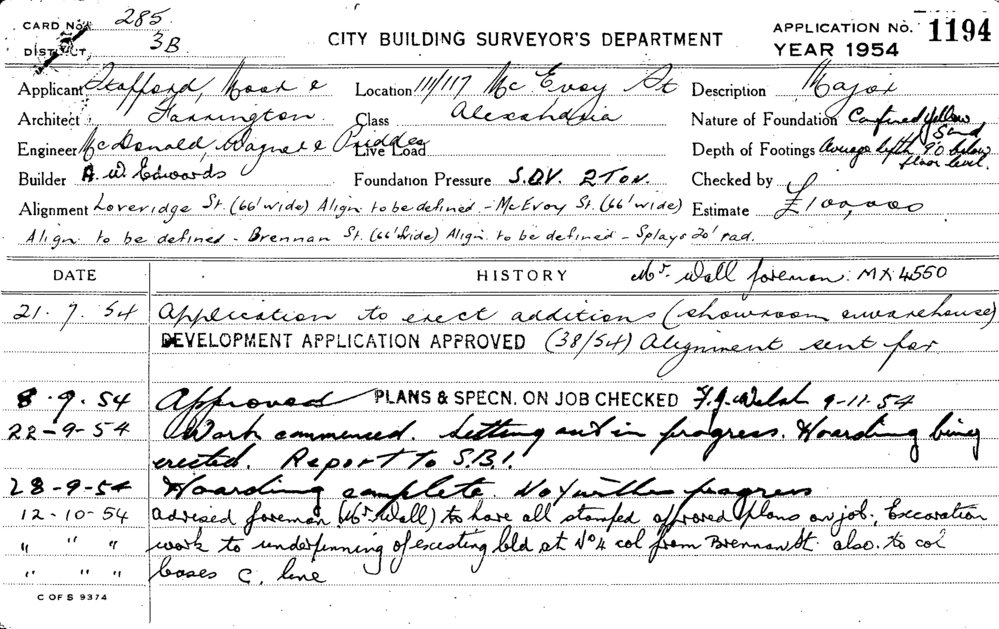 CARD No. 285
DISTRICT 3B
CITY BUILDING SURVEYOR'S DEPARTMENT
APPLICATION No. 1194
YEAR 1954
Applicant Stafford, Moor & Location 111/117 McEvoy St Description Major
Architect Farrington. Class Alexandria Nature of Foundation Confined yellow Sand
Engineer McDonald, Wagner & Priddle Live Load Depth of Footings Average depth 9'0 below floor level.
Builder A. W. Edwards Foundation Pressure S.D.V. 2 Ton. Checked by
Alignment Loveridge St. (66' wide) Align to be defined - McEvoy St. (66' wide) Estimate £100,000
Align to be defined - Brennan St. (66' wide) Align. to be defined - Splays 20' rad.
DATE HISTORY Mr. Wall foreman. MX 4550
21. 7. 54 Application to erect additions (showroom & warehouse)
DEVELOPMENT APPLICATION APPROVED (38/54) Alignment sent for
8. 9. 54 Approved PLANS & SPECN. ON JOB CHECKED F.J. Welsh 9-11-54
22-9-54 Work commenced. Setting out in progress. Hoarding being
erected. Report to S.B.I.
28-9-54 Hoarding complete. No further progress
12-10-54 advised foreman (Mr. Wall) to have all stamped approved plans on job. Excavation
" " " work to underpinning of existing bld at No 4 col from Brennan St. also to col
" " " bases C. line
C OF S 9374